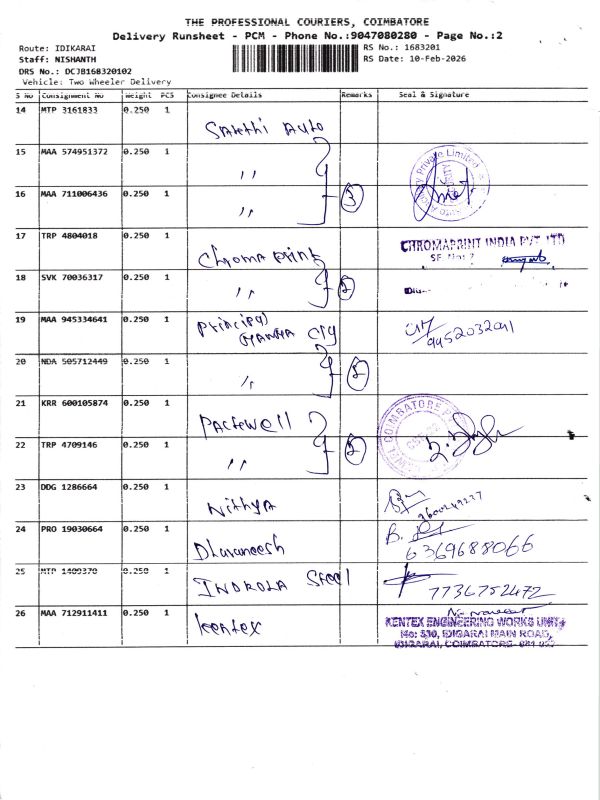 THE PROFESSIONAL COURIERS, COIMBATORE
Delivery Runsheet - PCM - Phone No.:9047080280 - Page No.:2
Route: IDIKARAI
RS No.: 1683201
Staff: NISHANTH
RS Date: 10-Feb-2026
DRS No.: DCJB168320102
Vehicle: Two Wheeler Delivery
S No Consignment No Weight PCS Consignee Details Remarks Seal & Signature
14 MTP 3161833 0.250 1
Sakthi Auto
15 MAA 574951372 0.250 1
,,
Private Limited
16 MAA 711006436 0.250 1
,, 3
17 TRP 4804018 0.250 1
Chroma print
CHROMAPRINT INDIA PVT LTD
18 SVK 70036317 0.250 1
,, 2
19 MAA 945334641 0.250 1
Principal
9952032041
20 NDA 505712449 0.250 1
,, 2
21 KRR 600105874 0.250 1
Packwell
COIMBATORE
22 TRP 4709146 0.250 1
,, 2
23 DDG 1286664 0.250 1
Nithya
24 PRO 19030664 0.250 1
B.
Dhavaneesh 6369688066
25 MTP 1409370 0.250 1
INDROLA Steel 7736752472
26 MAA 712911411 0.250 1
kentex
KENTEX ENGINEERING WORKS UNIT
No: 510, IDIGARAI MAIN ROAD,
IDIGARAI, COIMBATORE-